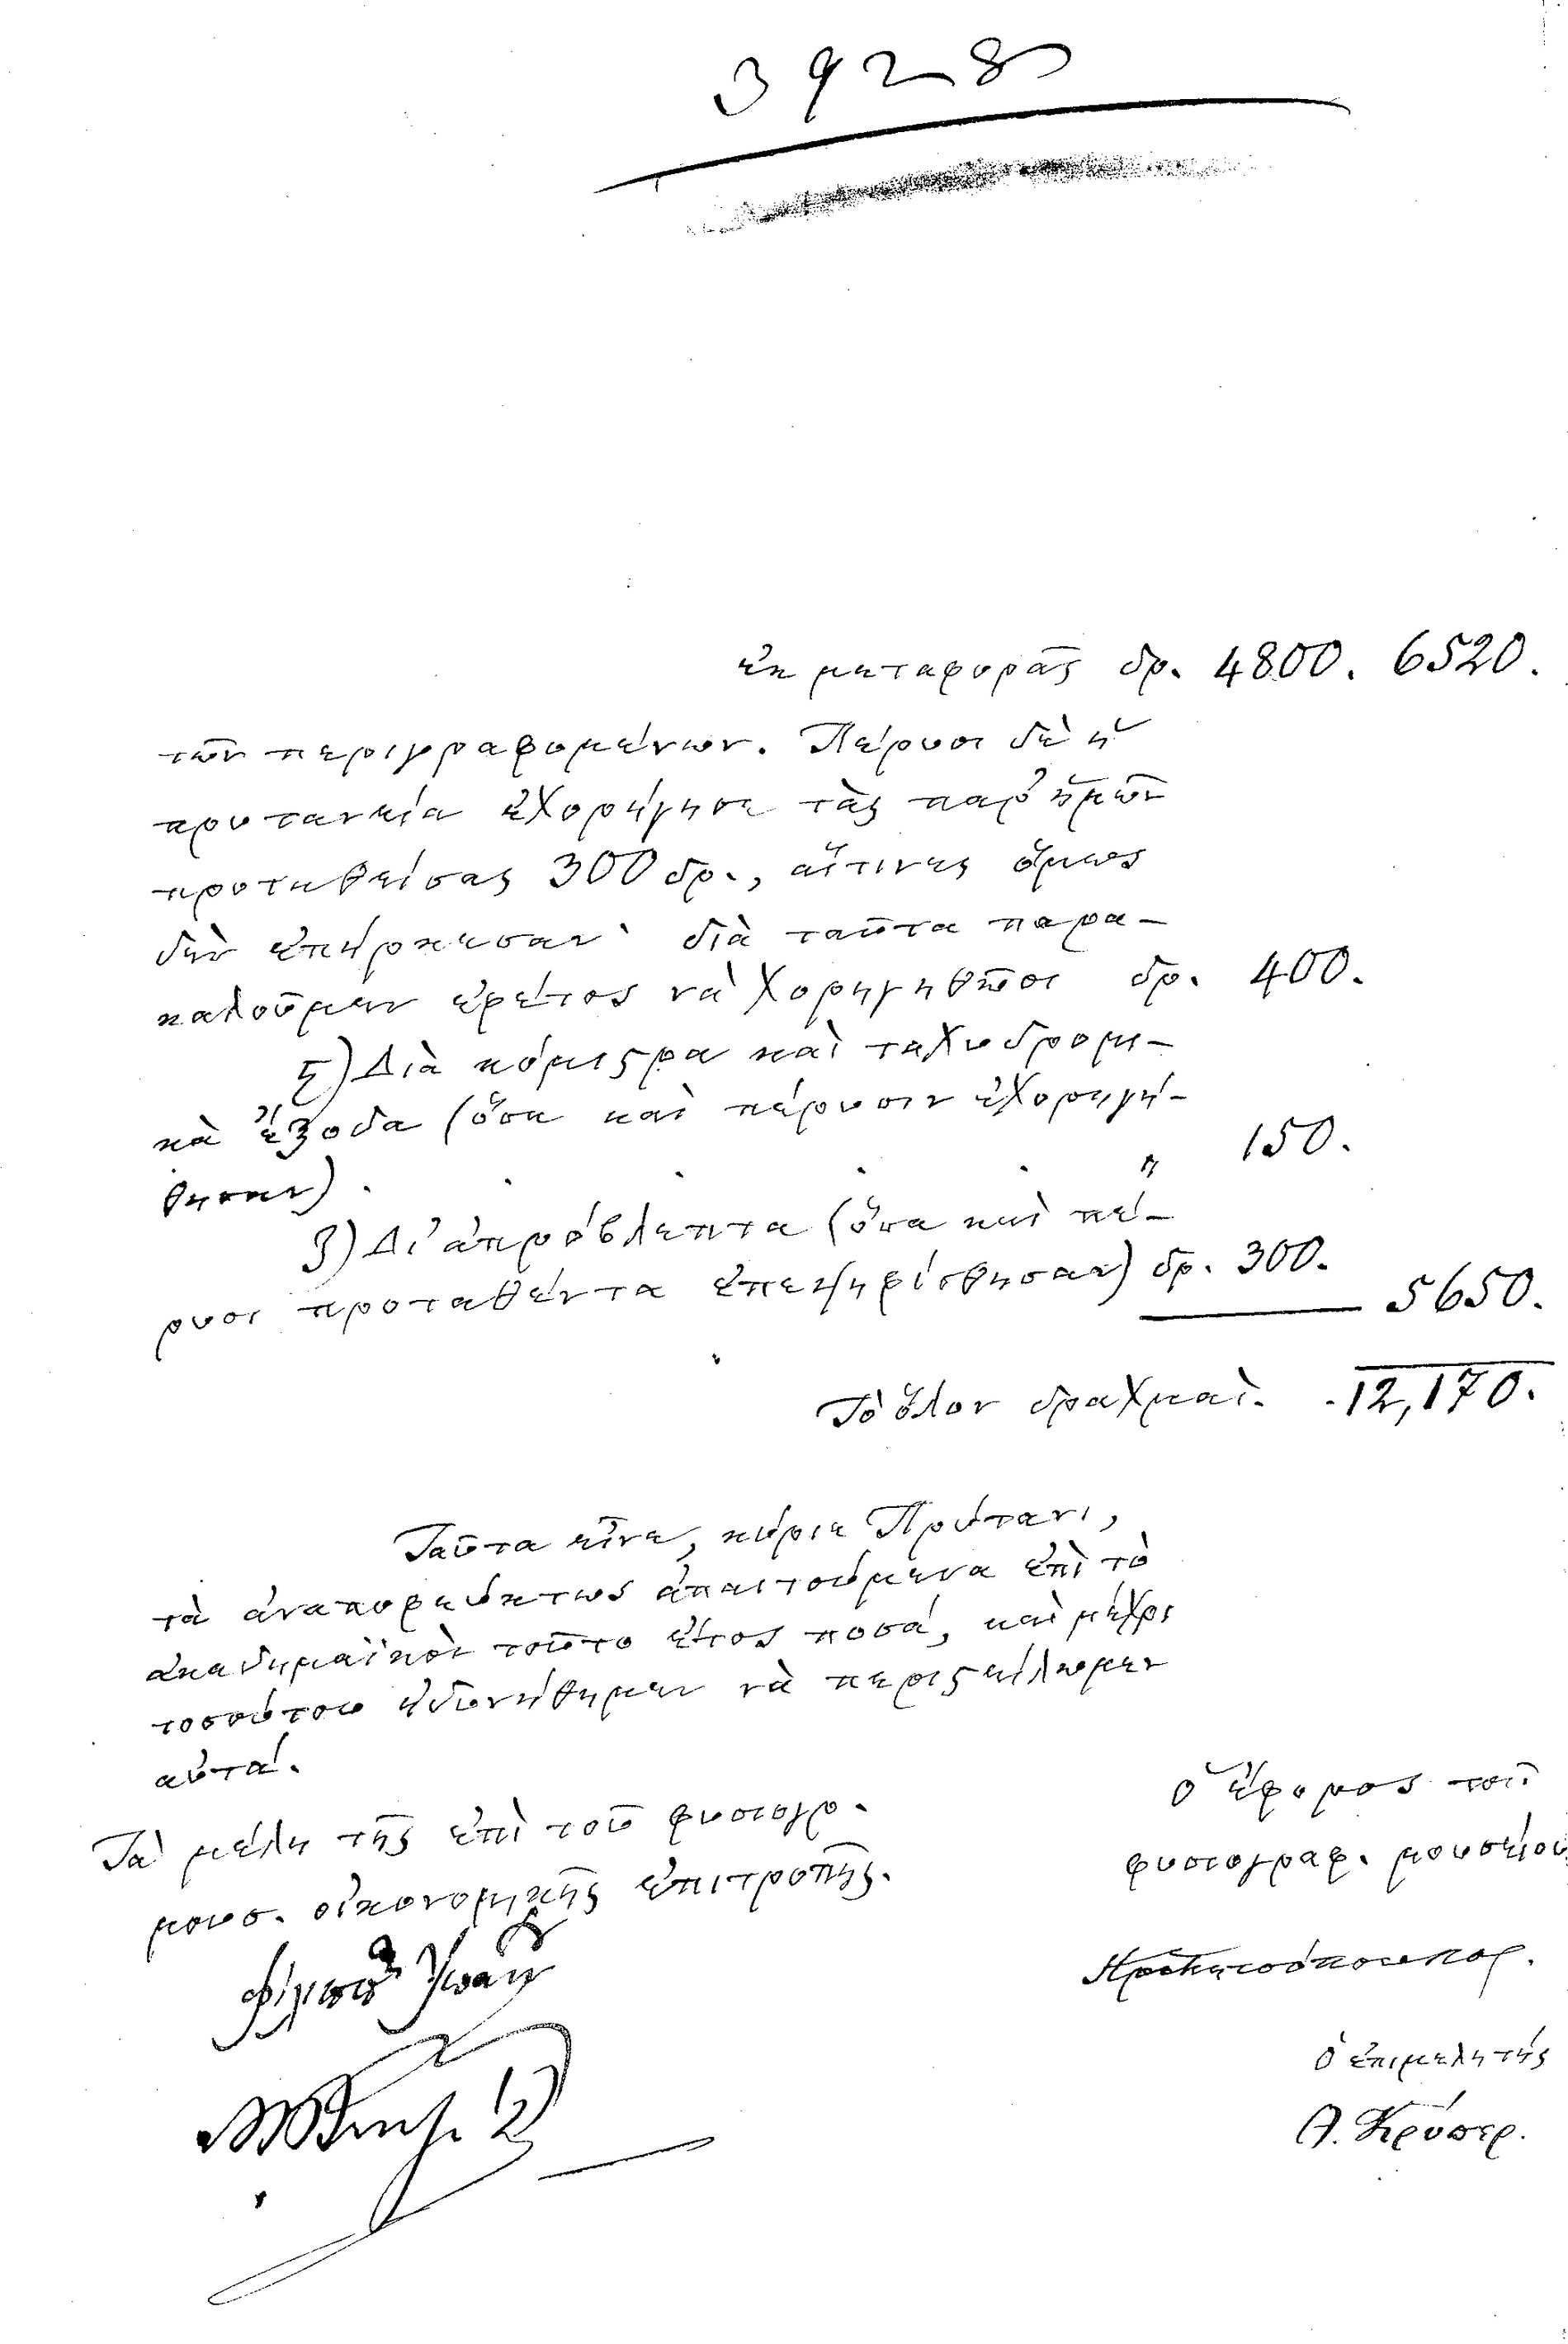 3928
ἐκ μεταφορᾶς δρ. 4800. 6520.
τῶν περιγραφομένων. Πέρυσι δὲ ἡ
πρυτανεία ἐχορήγησε τὰς παρ' ἡμῶν
προταθείσας 300 δρ., αἵτινες ὅμως
δὲν ἐπήρκεσαν· διὰ ταῦτα παρα-
καλοῦμεν ἐφέτος νὰ χορηγηθῶσι δρ. 400.
ς) Διὰ κόμιςρα καὶ ταχυδρομι-
κὰ ἔξοδα (ὅσα καὶ πέρυσιν ἐχορηγή-
θησαν) . . . . " 150.
ζ) Δι' ἀπρόβλεπτα (ὅσα καὶ πέ-
ρυσι προταθέντα ἐπεψηφίσθησαν) δρ. 300.
5650.
Τὸ ὅλον δραχμαὶ. . 12,170.
Ταῦτα εἶνε, κύριε Πρύτανι,
τὰ ἀναποφεύκτως ἀπαιτούμενα ἐπὶ τὸ
ἀκαδημαϊκὸν τοῦτο ἔτος ποσά, καὶ μέχρι
τοσούτου ἠδυνήθημεν νὰ περιςείλωμεν
αὐτά.
Ὁ ἔφορος τοῦ
Τὰ μέλη τῆς ἐπὶ τοῦ φυσιογρ.
φυσιογραφ. μουσείου
μουσ. οἰκονομικῆς ἐπιτροπῆς.
Ὁ ἐπιμελητής
Θ. Κρύπερ.